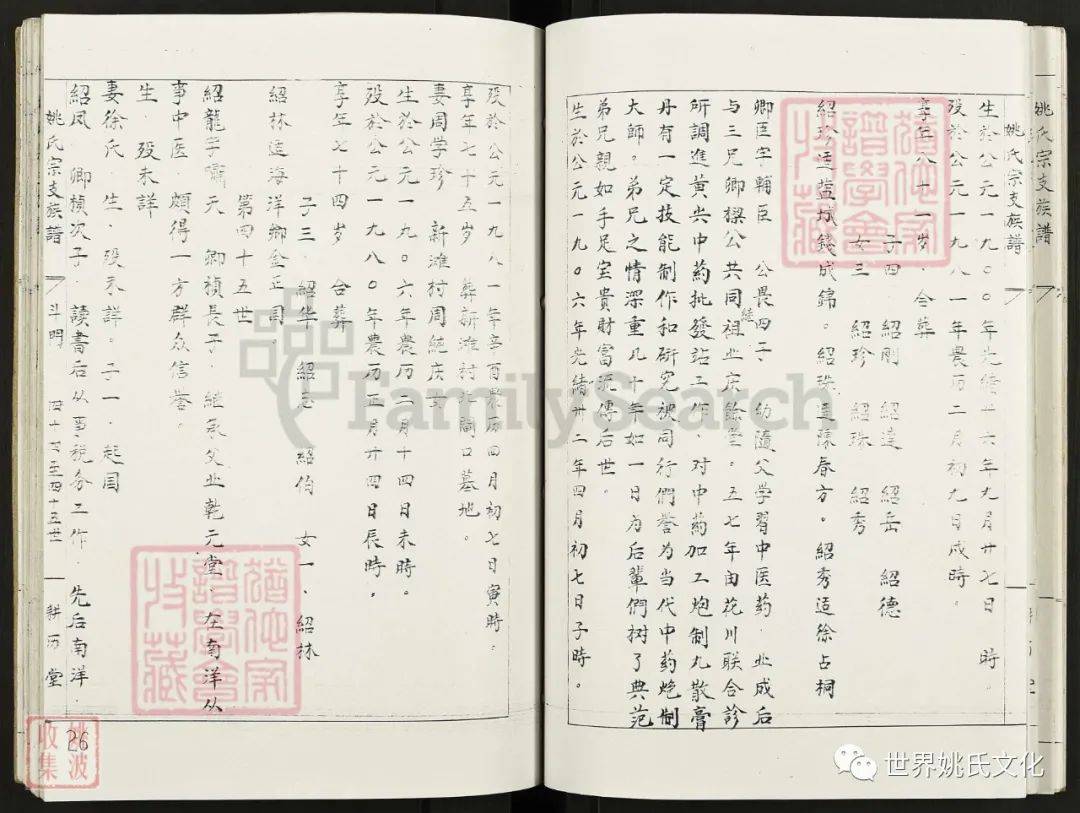 姚氏宗支族譜
姚氏宗支族譜
生於公元一九〇〇年光緒廿六年九月廿七日 時。
殁於公元一九八一年農历二月初九日戍時。
享年八十一岁、合葬
子四 紹剛 紹達 紹岳 紹德
女三 紹珍 紹珠 紹秀
紹珍适塩城錢成錦。紹珠适陳春方。紹秀适徐占桐
卿臣字輔臣 公畏四子 幼隨父学習中医葯.业成后
与三兄卿樑公共同继祖业庆餘堂。五七年由花川联合診
所調進黄尖中葯批發站工作.对中葯加工炮制丸散膏
丹有一定技能制作和研究被同行們誉为当代中葯炮制
大師。弟兄之情深重几十年如一日为后輩們树了典范
弟兄親如手足室貴財富流傳后世。
生於公元一九〇六年光緒卅二年四月初七日子時。
殁於公元一九八一年辛酉農历四月初七日寅時。
享年七十五岁 葬新滩村 閘口墓地。
妻周学珍 新滩村周統庆女
生於公元一九〇六年農历二月十四日未時。
殁於公元一九八〇年農历正月廿四日辰時。
享年七十四岁 合葬
子三、紹华 紹志 紹伯 女一、紹林
紹林适海洋鄉金正国.
第四十五世
紹龍字嘯天 卿禎長子.继承父业乾元堂.在南洋从
事中医 頗得一方群众信誉。
生.殁未詳
妻徐氏 生.殁未詳.子一.起国
紹凤 卿禎次子.讀書后从事税务工作.先后南洋.
姚氏宗支族譜 斗門 四十四至四十五世 耕历堂
26
姚波
收集
FamilySearch
世界姚氏文化